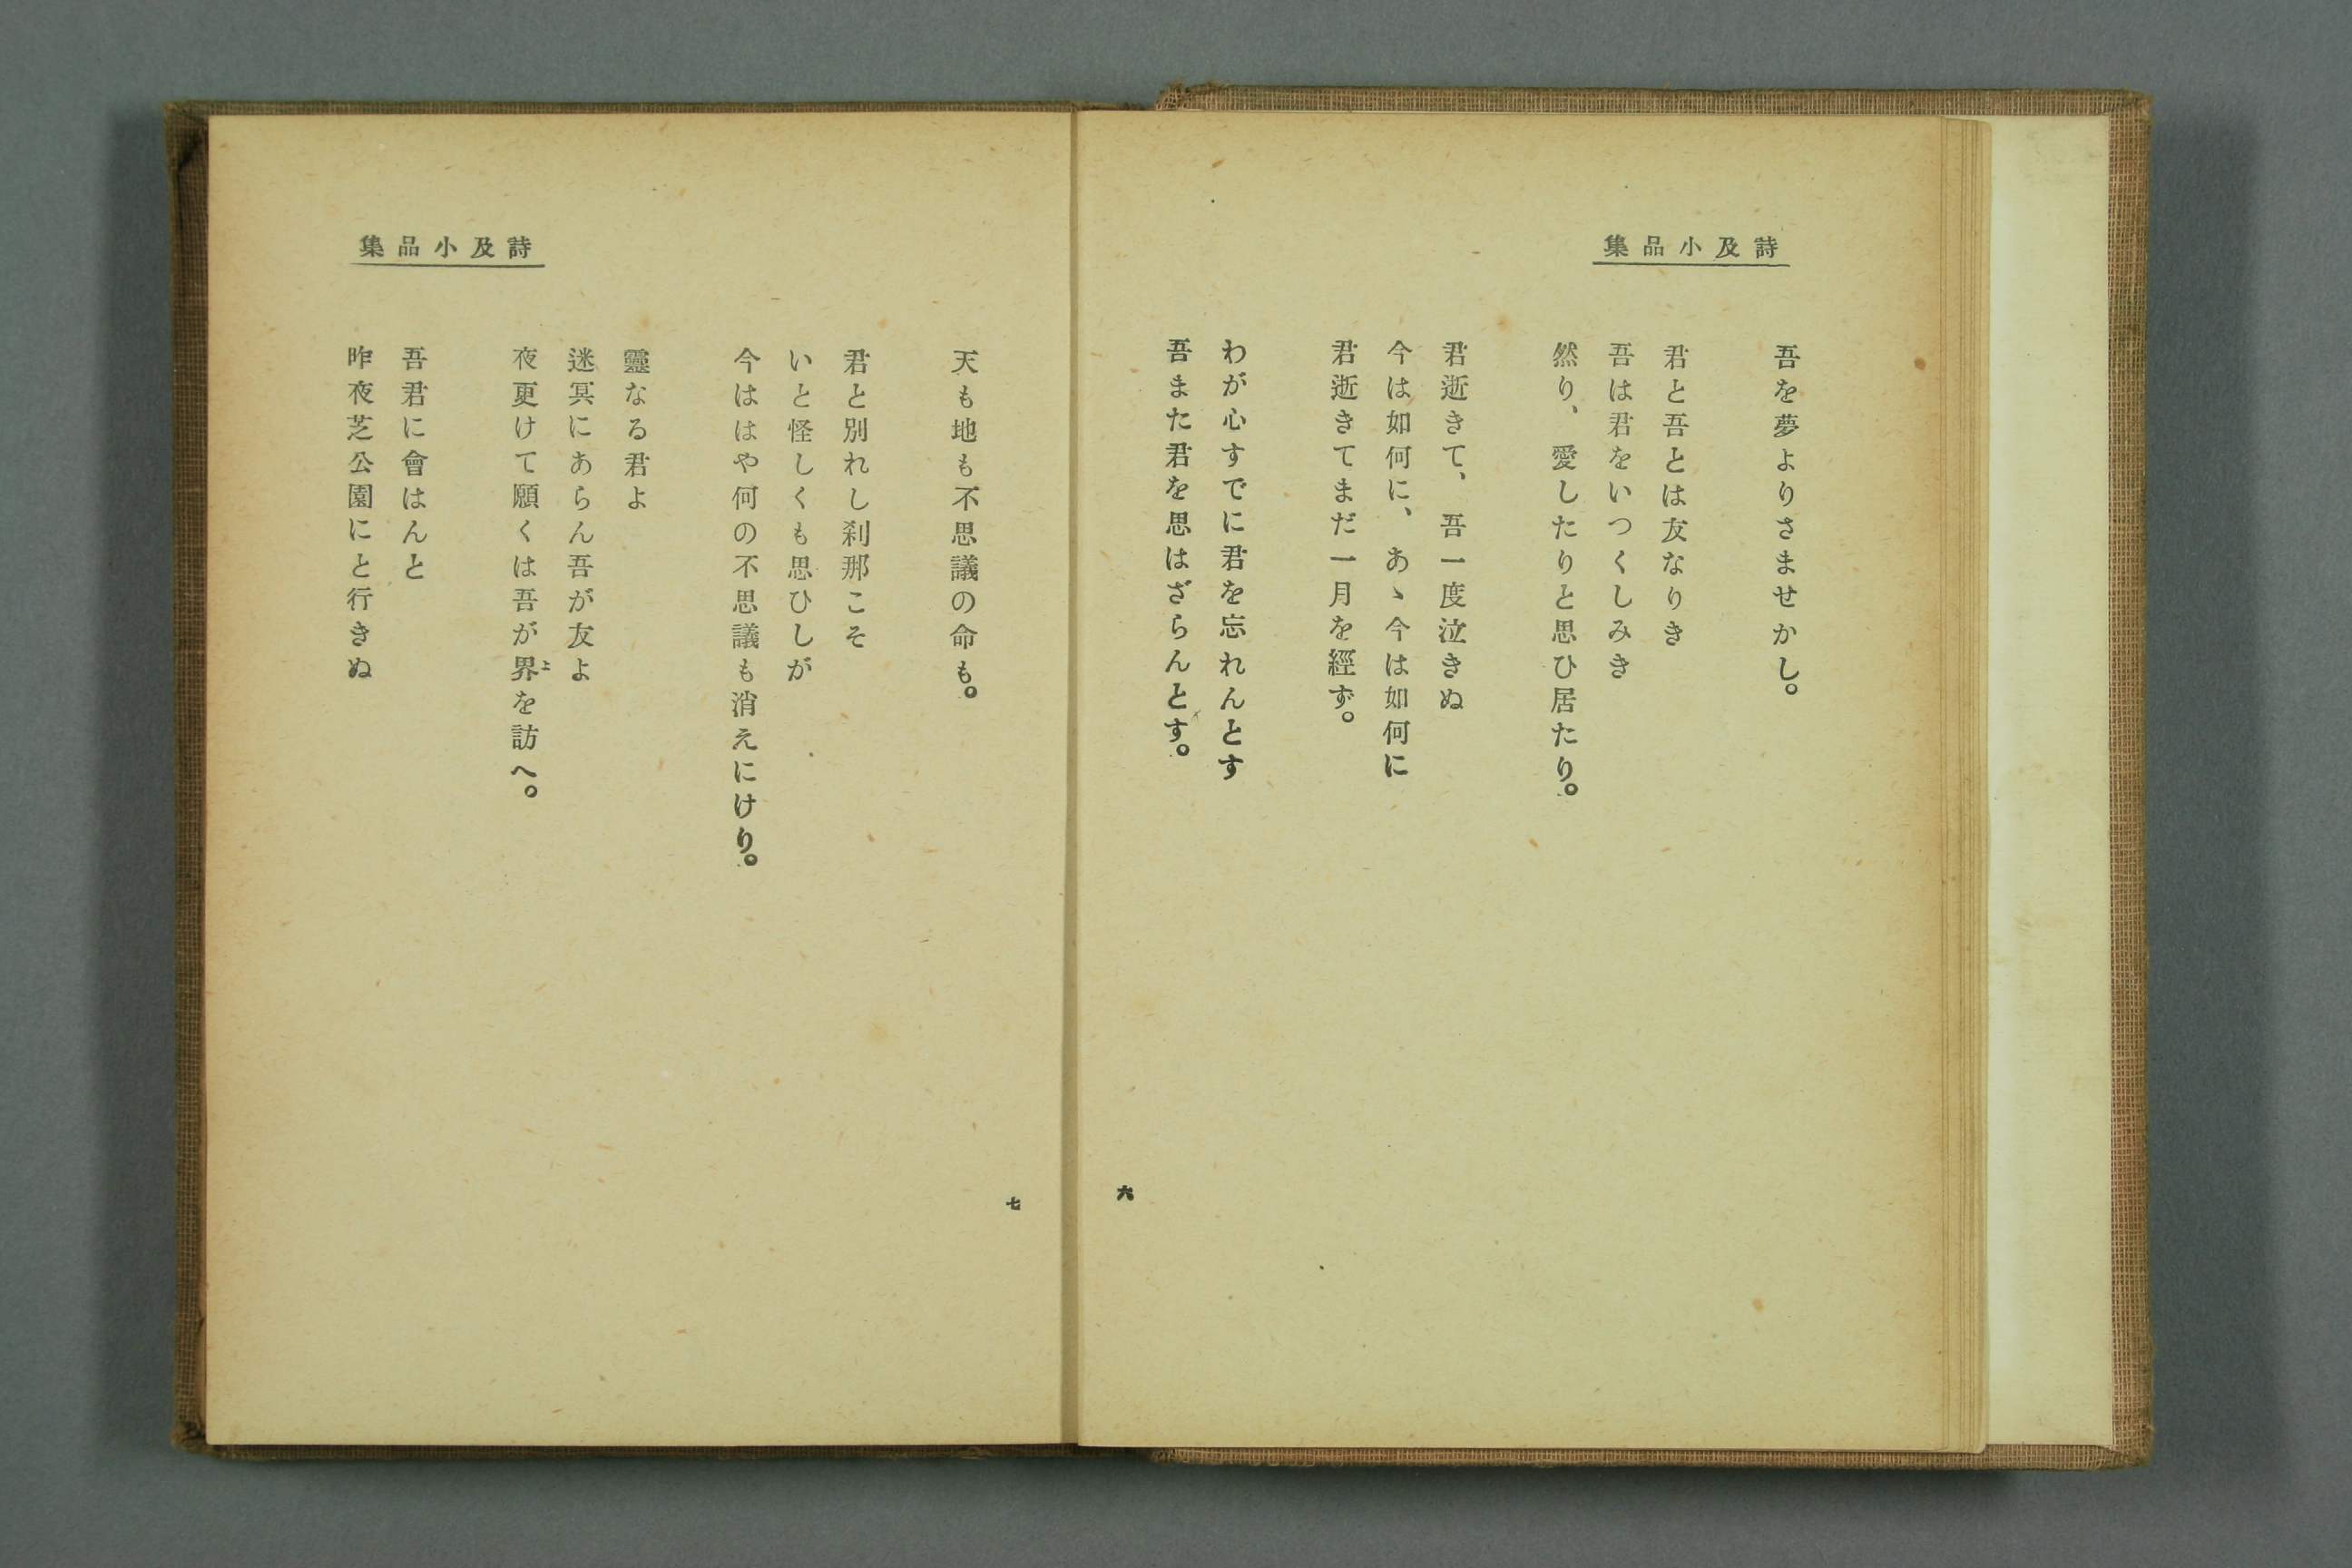 詩及小品集
吾を夢よりさませかし。
君と吾とは友なりき
吾は君をいつくしみき
然り、愛したりと思ひ居たり。
君逝きて、吾一度泣きぬ
今は如何に、あゝ今は如何に
君逝きてまだ一月を經ず。
わが心すでに君を忘れんとす
吾また君を思はざらんとす。
六
詩及小品集
天も地も不思議の命も。
君と別れし刹那こそ
いと怪しくも思ひしが
今ははや何の不思議も消えにけり。
靈なる君よ
迷冥にあらん吾が友よ
夜更けて願くは吾が界を訪へ。
よ
吾君に會はんと
昨夜芝公園にと行きぬ
七